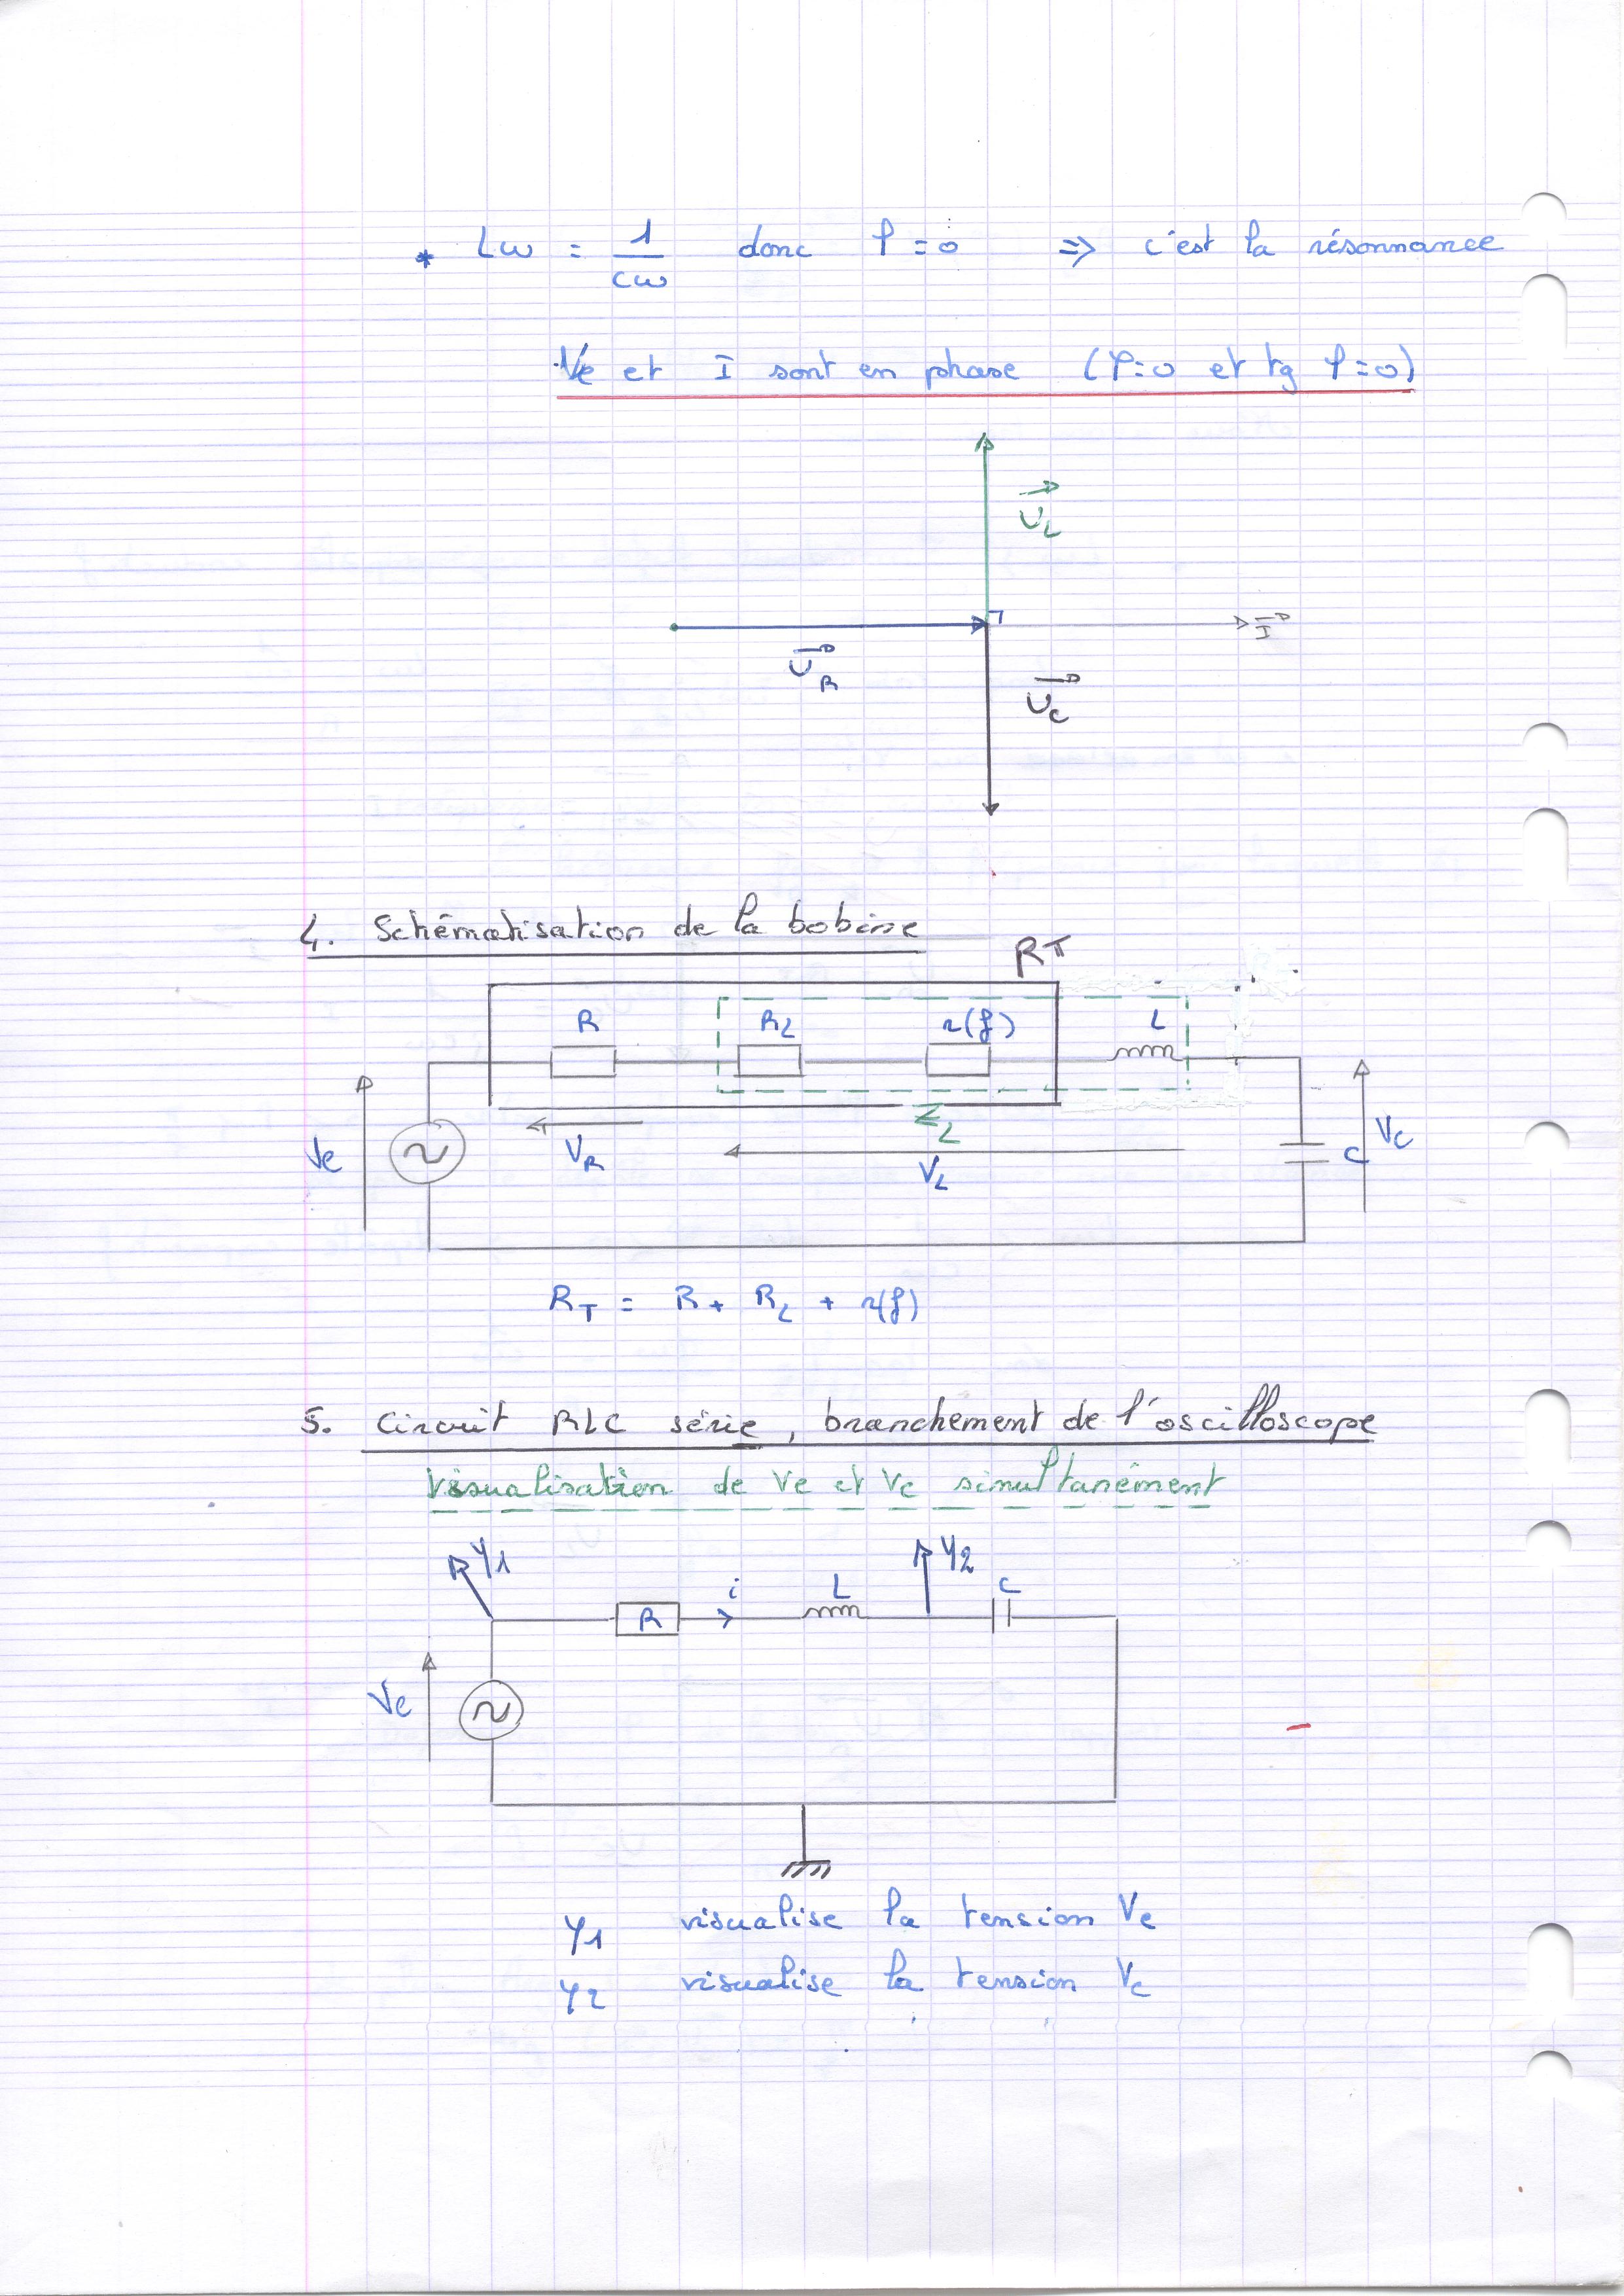 * Lω = 1/cω donc φ = 0 => c'est la résonnance
Ve et I sont en phase (φ=0 et tg φ=0)
U_L
U_R
I
U_C
4. Schématisation de la bobine
RT
R R_L r(f) L
Z_L
Ve V_R V_L C V_C
R_T = R + R_L + r(f)
5. Circuit RLC série, branchement de l'oscilloscope
Visualisation de Ve et Vc simultanément
Y1 Y2
R i L C
Ve
Y1 visualise la tension Ve
Y2 visualise la tension Vc